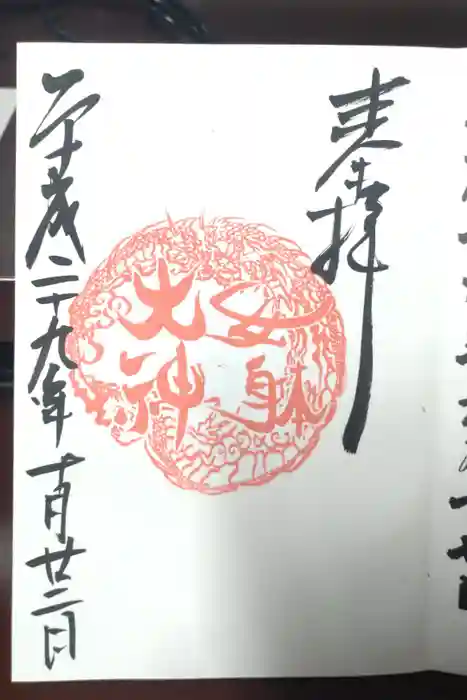 奉拝
女躰
大神
平成二十九年十月廿二日